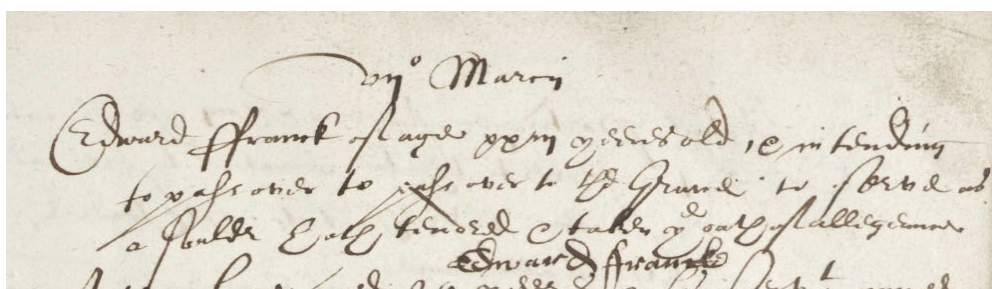 vijo Marcij
Edward ffranck of age xxiij yeeres old, & intending
to passe over to passe over to the Grave to serve as
a souldr hath tendred & taken ye oath of allegeance
Edward ffrancke